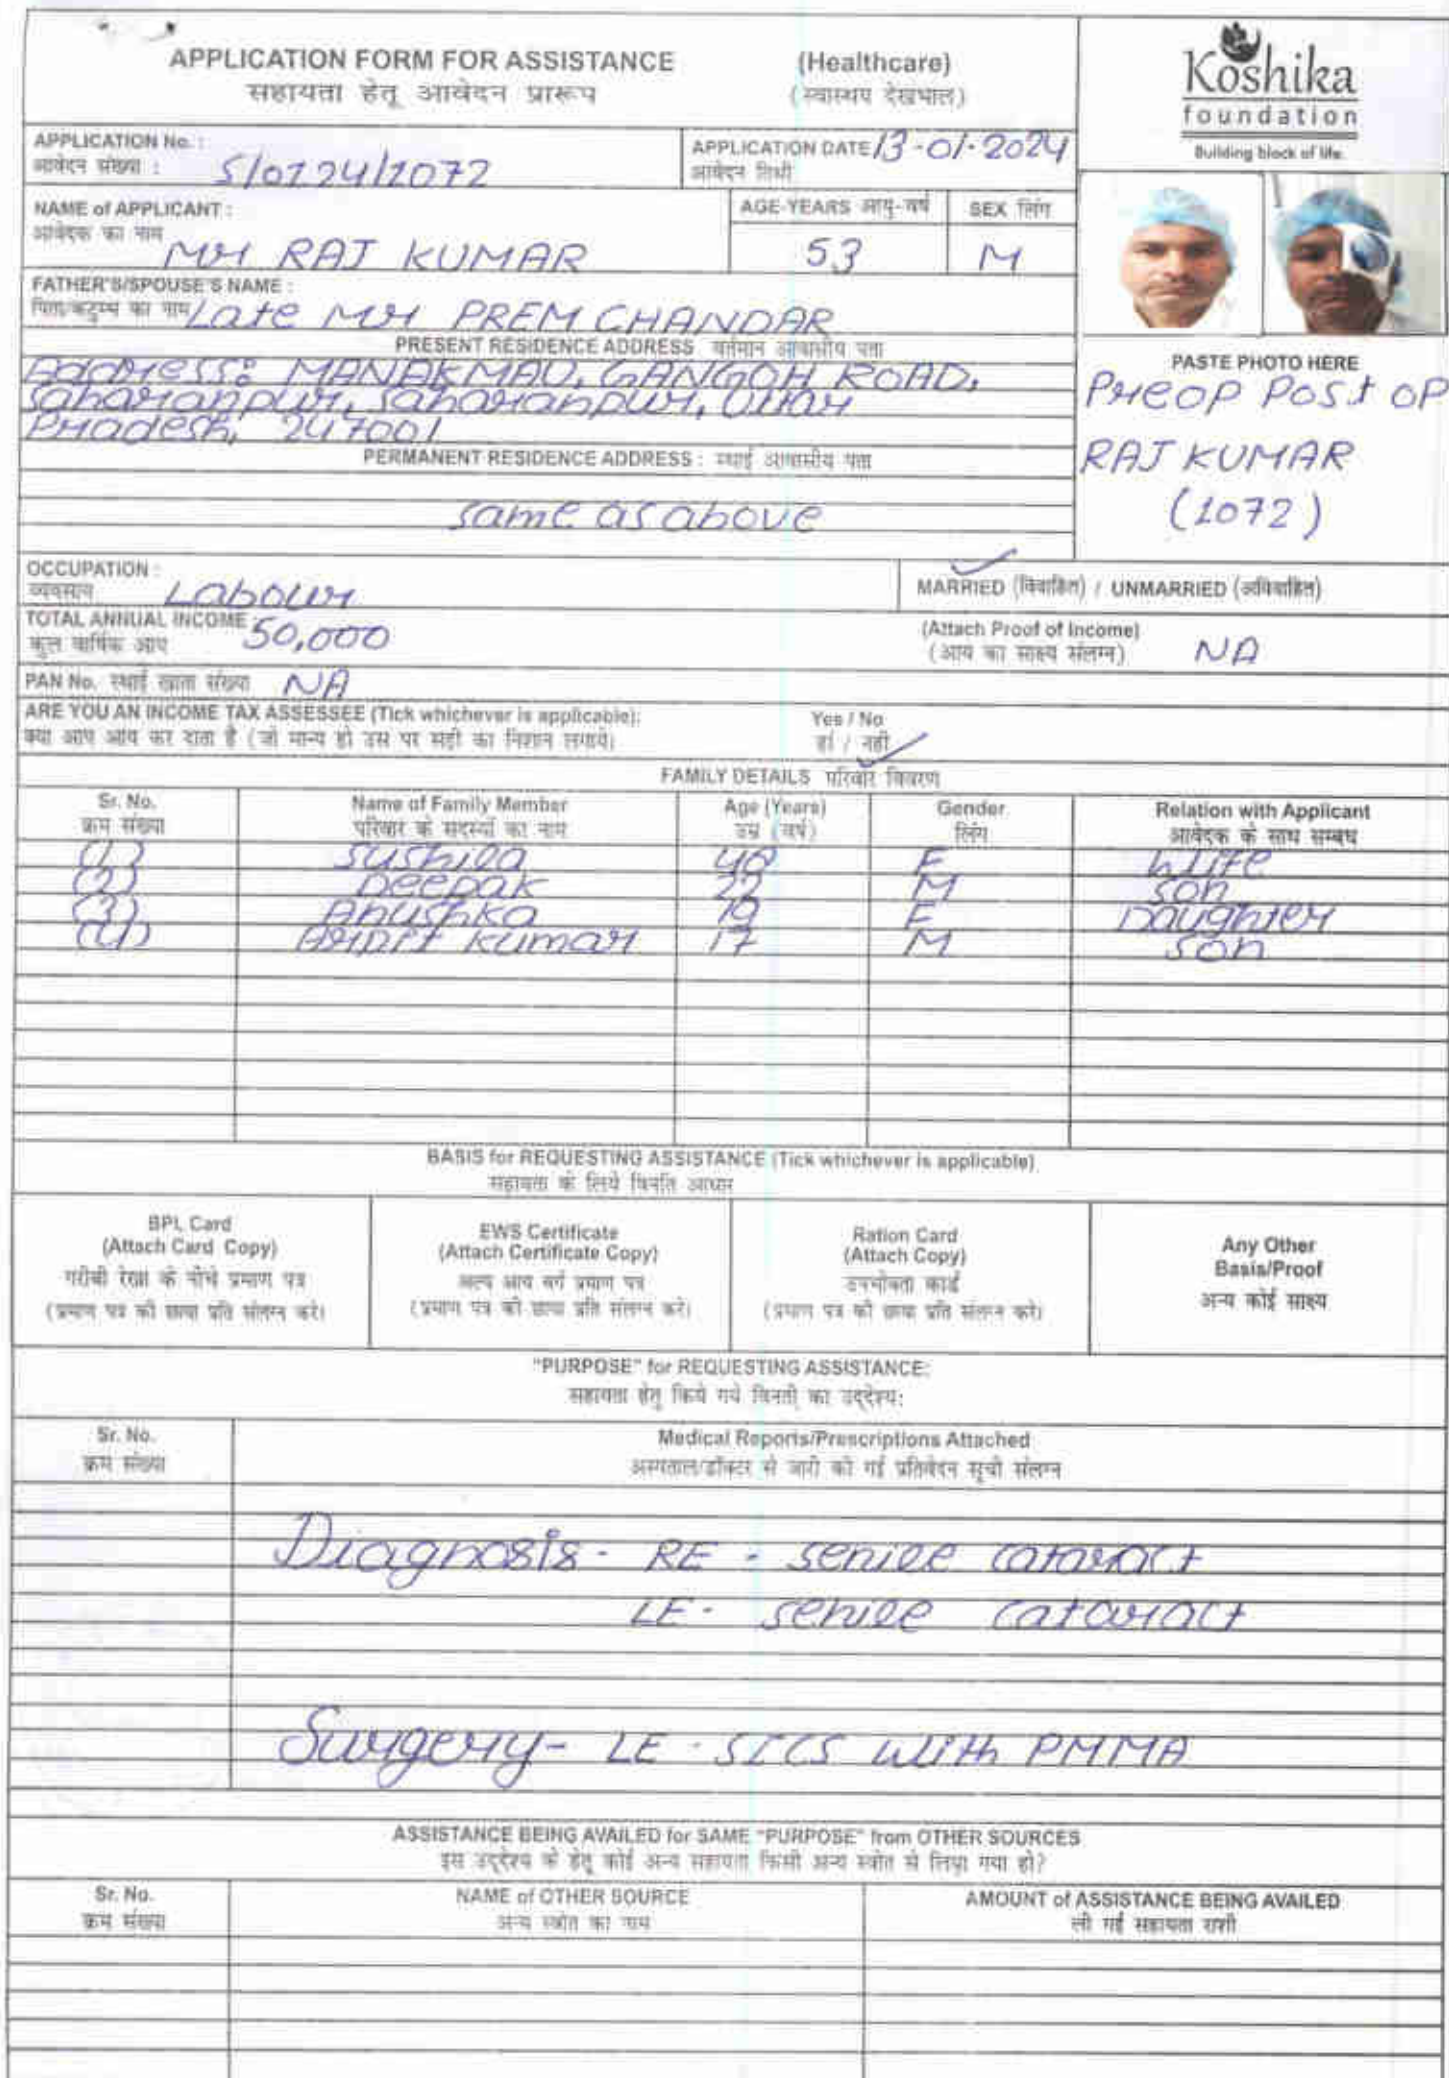 APPLICATION FORM FOR ASSISTANCE (Healthcare)
सहायता हेतू आवेदन प्रारूप (स्वास्थय देखभाल)
Koshika
foundation
Building block of life.
APPLICATION No. :
आवेदन संख्या : S/0124/1072
APPLICATION DATE 13-01-2024
आवेदन तिथी
NAME of APPLICANT :
आवेदक का नाम MR RAJ KUMAR
AGE-YEARS आयु-वर्ष 53
SEX लिंग M
FATHER'S/SPOUSE'S NAME :
पिता/कटुम्ब का नाम Late MR PREM CHANDAR
PRESENT RESIDENCE ADDRESS वर्तमान आवासीय पता
Address: MANAKMAU, GANGOH ROAD,
Saharanpur, Saharanpur, Uttar
Pradesh, 247001
PERMANENT RESIDENCE ADDRESS : स्थाई आवासीय पता
same as above
PASTE PHOTO HERE
Preop Post op
RAJ KUMAR
(1072)
OCCUPATION :
व्यवसाय Labour
MARRIED (विवाहित) / UNMARRIED (अविवाहित)
TOTAL ANNUAL INCOME 50,000
कुल वार्षिक आय
(Attach Proof of Income)
(आय का साक्ष्य संलग्न) NA
PAN No. स्थाई खाता संख्या NA
ARE YOU AN INCOME TAX ASSESSEE (Tick whichever is applicable): Yes / No
क्या आप आय कर दाता है (जो मान्य हो उस पर सही का निशान लगाये) हां / नही
FAMILY DETAILS परिवार विवरण
Sr. No. Name of Family Member Age (Years) Gender Relation with Applicant
क्रम संख्या परिवार के सदस्यों का नाम उम्र (वर्ष) लिंग आवेदक के साथ सम्बंध
(1) Sushila 48 F Wife
(2) Deepak 22 M Son
(3) Anushka 19 F Daughter
(4) Arpit Kumar 17 M Son
BASIS for REQUESTING ASSISTANCE (Tick whichever is applicable)
सहायता के लिये विनति आधार
BPL Card
(Attach Card Copy)
गरीबी रेखा के नीचे प्रमाण पत्र
(प्रमाण पत्र की छाया प्रति संलग्न करे)
EWS Certificate
(Attach Certificate Copy)
अल्प आय वर्ग प्रमाण पत्र
(प्रमाण पत्र की छाया प्रति संलग्न करे)
Ration Card
(Attach Copy)
उपभोक्ता कार्ड
(प्रमाण पत्र की छाया प्रति संलग्न करे)
Any Other
Basis/Proof
अन्य कोई साक्ष्य
"PURPOSE" for REQUESTING ASSISTANCE:
सहायता हेतु किये गये विनती का उद्देश्य:
Sr. No. Medical Reports/Prescriptions Attached
क्रम संख्या अस्पताल/डॉक्टर से जारी की गई प्रतिवेदन सूची संलग्न
Diagnosis- RE - senile cataract
LE- senile cataract
Surgery- LE - SICS with PMMA
ASSISTANCE BEING AVAILED for SAME "PURPOSE" from OTHER SOURCES
इस उद्देश्य के हेतु कोई अन्य सहायता किसी अन्य स्त्रोत से लिया गया हो?
Sr. No. NAME of OTHER SOURCE AMOUNT of ASSISTANCE BEING AVAILED
क्रम संख्या अन्य स्त्रोत का नाम ली गई सहायता राशी